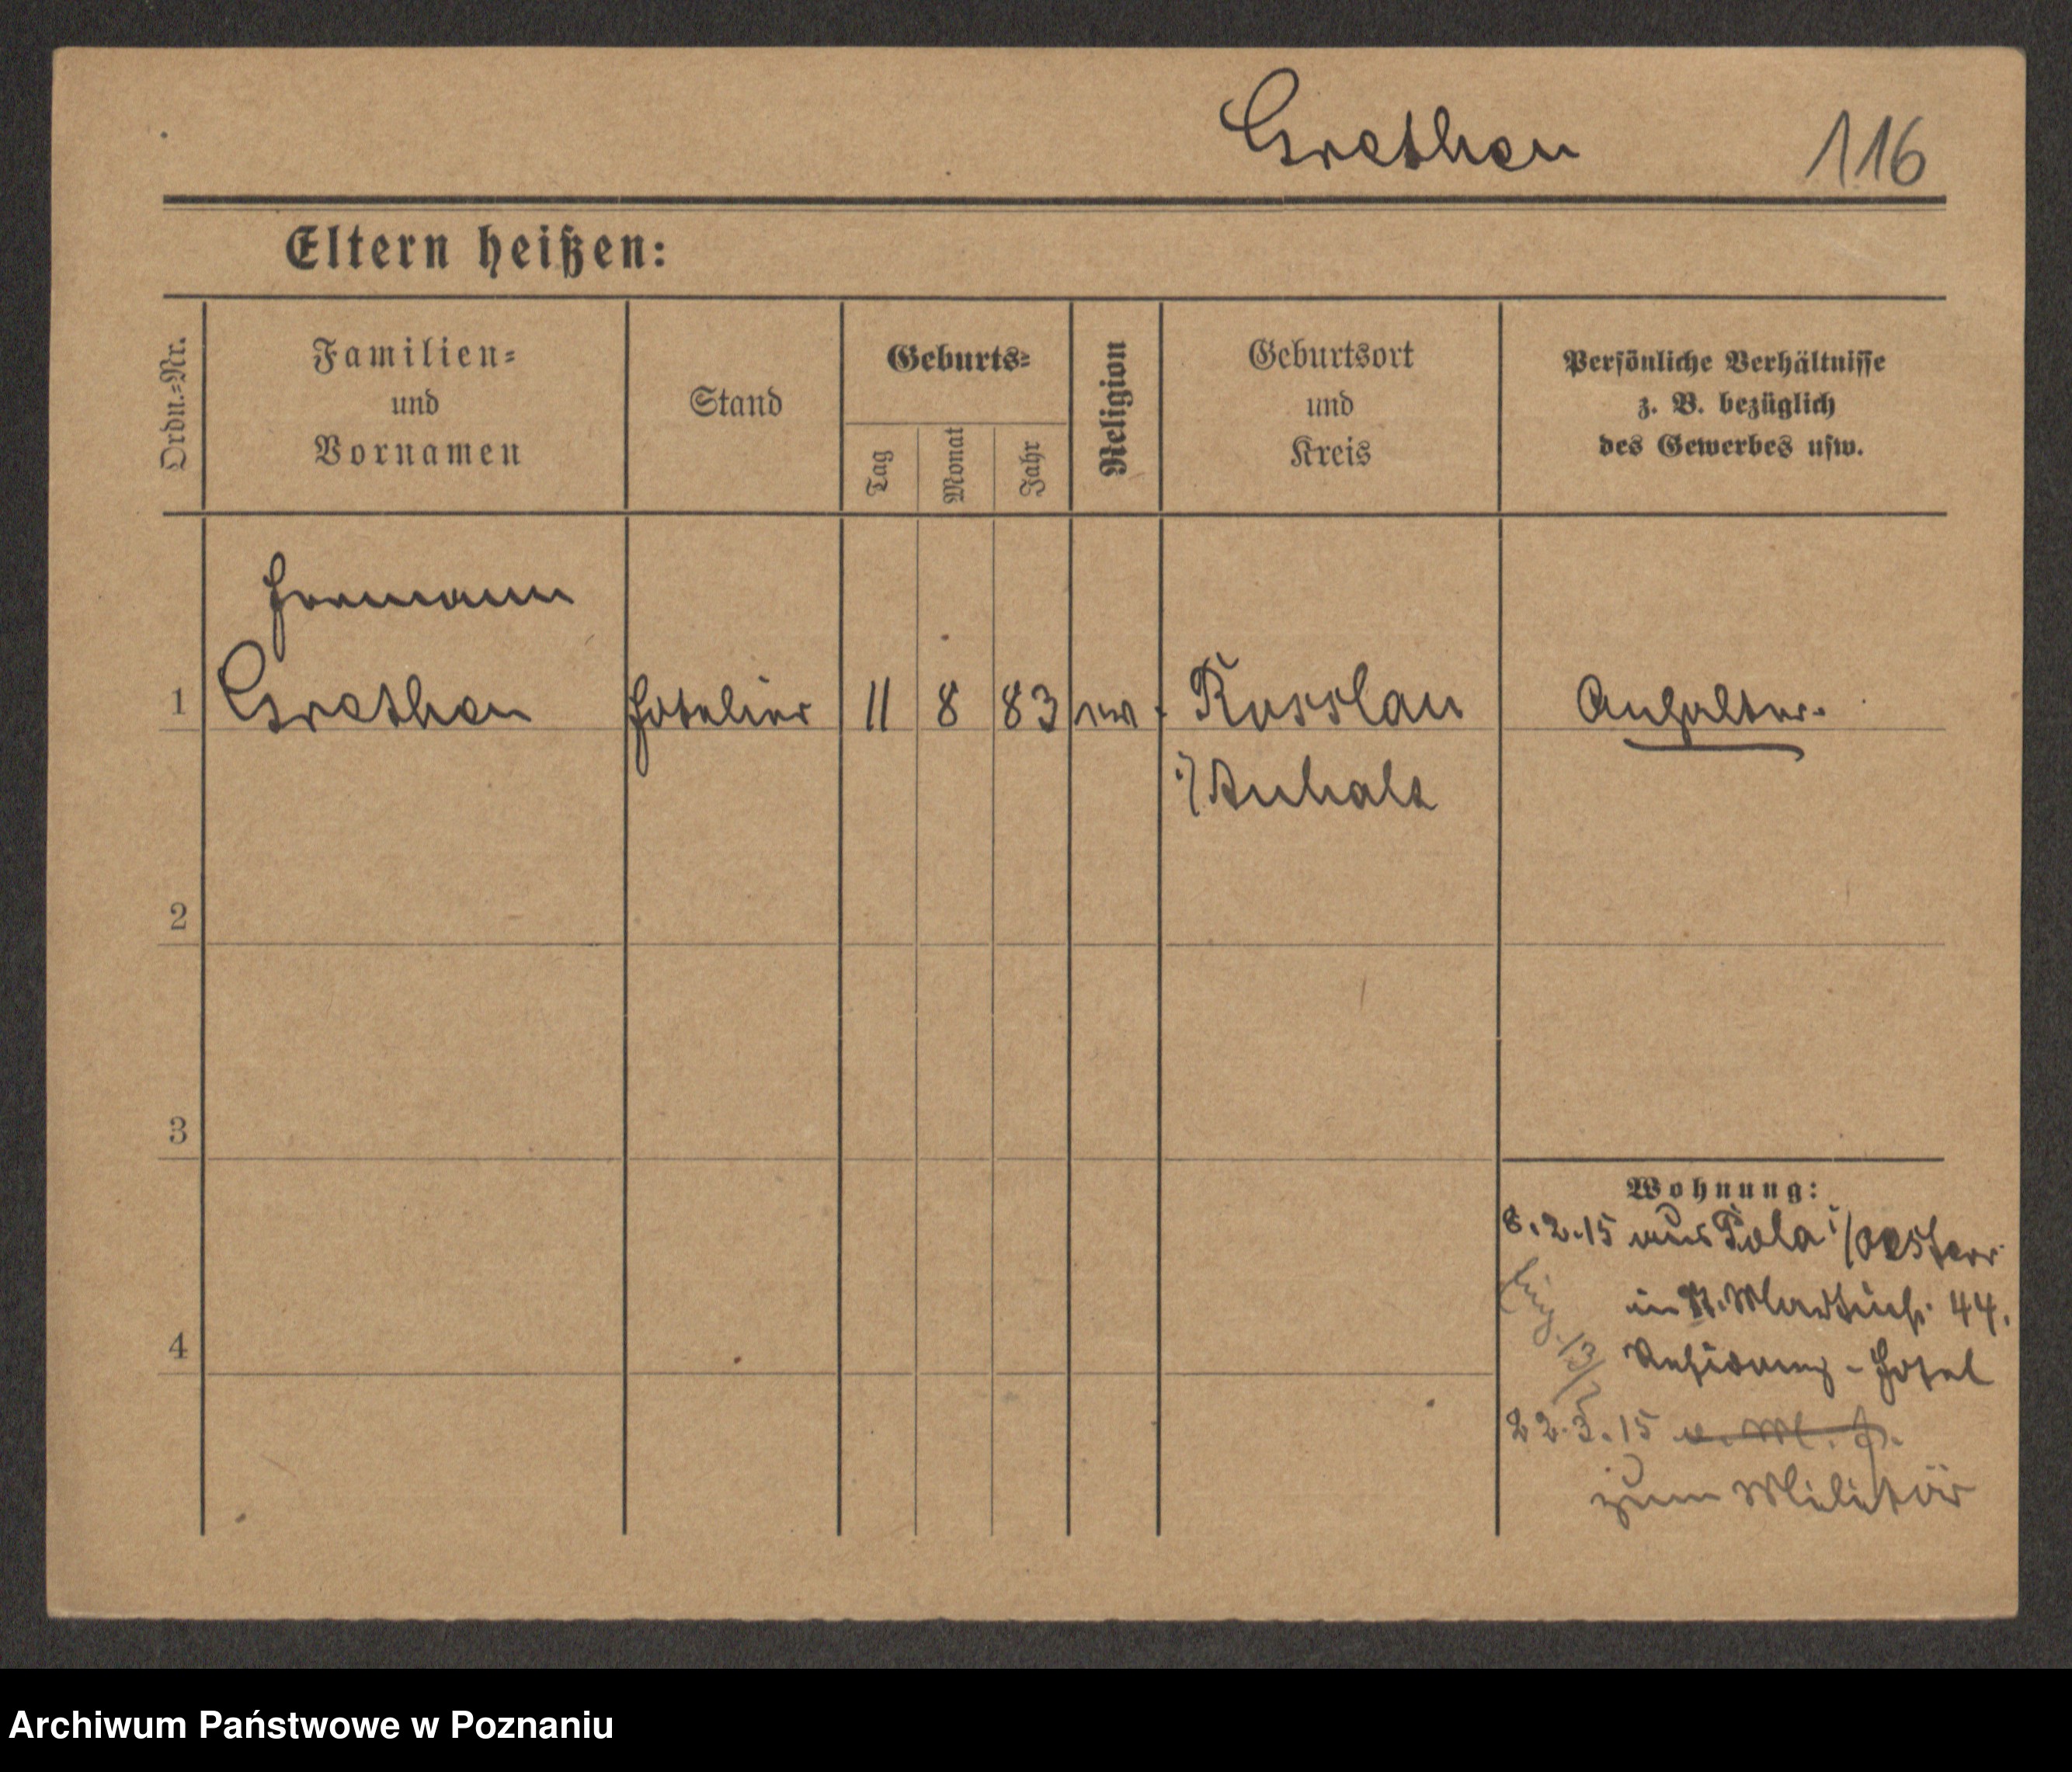 Grethen 116
Eltern heißen:
Ordn.=Nr.
Familien=
und
Vornamen
Stand
Geburts=
Tag
Monat
Jahr
Religion
Geburtsort
und
Kreis
Persönliche Verhältnisse
z. B. bezüglich
des Gewerbes usw.
Hermann
1 Grethen Hotelier 11 8 83 ev. Rosslau Anhalter.
i/Anhalt
2
3
Wohnung:
8.2.15 aus Pola i/Oesterr
in St. Martinstr. 44.
13/2
4
- Hotel
22.3.15 v. M. H.
zum Militär
Archiwum Państwowe w Poznaniu